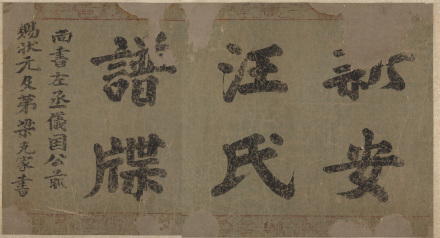 新安
汪氏
譜牒
尚書左丞儀国公前
賜狀元及第梁克家書